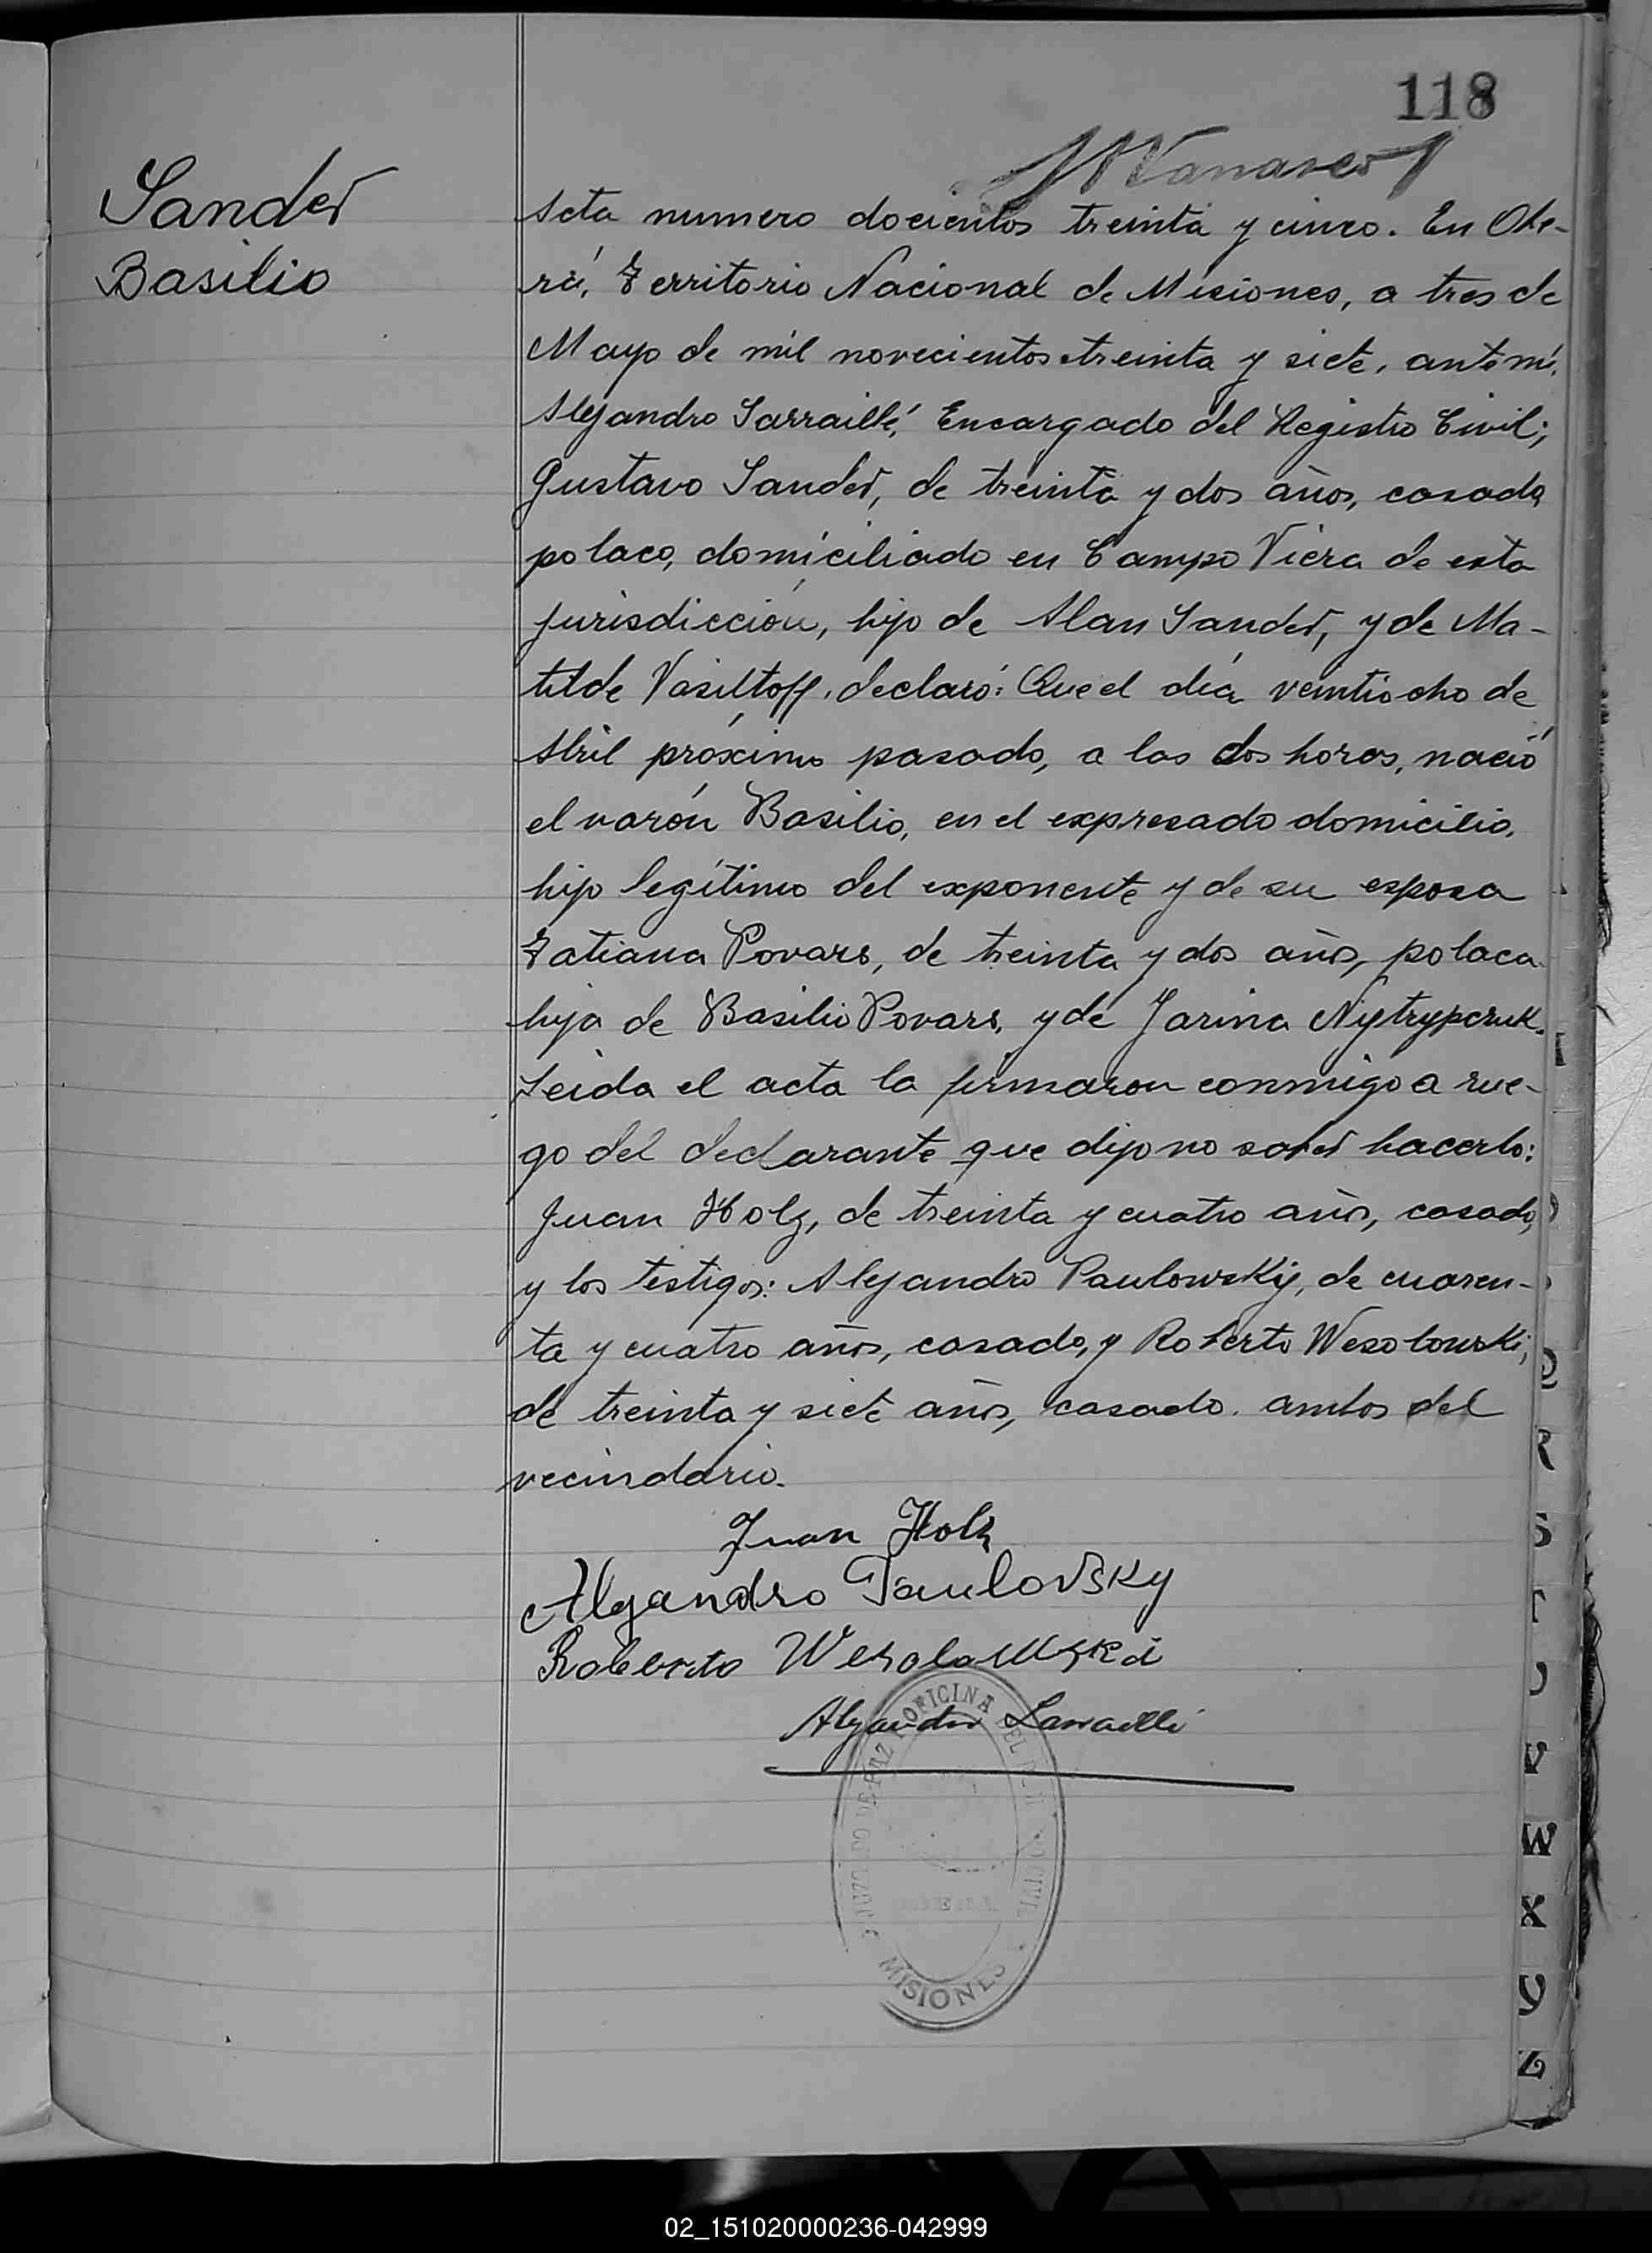 118
Sander
Basilio
Acta numero docientos treinta y cinco. En Obe-
rá, Territorio Nacional de Misiones, a tres de
Mayo de mil novecientos treinta y siete, ante mí,
Alejandro Sarraillé, Encargado del Registro Civil;
Gustavo Sander, de treinta y dos años, casado,
polaco, domiciliado en Campo Viera de esta
jurisdicción, hijo de Alan Sander, y de Ma-
tilde Vasiltoff, declaró: Que el día veintiocho de
Abril próximo pasado, a las dos horas, nació
el varón Basilio, en el expresado domicilio,
hijo legítimo del exponente y de su esposa
Tatiana Povars, de treinta y dos años, polaca
hija de Basilio Povars, y de Jarina Nytrypczuk.
Leida el acta la firmaron conmigo a rue-
go del declarante que dijo no saber hacerlo:
Juan Holz, de treinta y cuatro años, casado,
y los testigos: Alejandro Paulowsky, de cuaren-
ta y cuatro años, casado, y Roberto Wesolowski,
de treinta y siete años, casado. ambos del
vecindario.
Juan Holz
Alejandro Paulovsky
Roberto Wesolowski
Alejandro Sarraillé
OFICINA DEL
DE PAZ
CIVIL
MISIONES
R
S
T
U
V
W
X
Y
Z
02_151020000236-042999